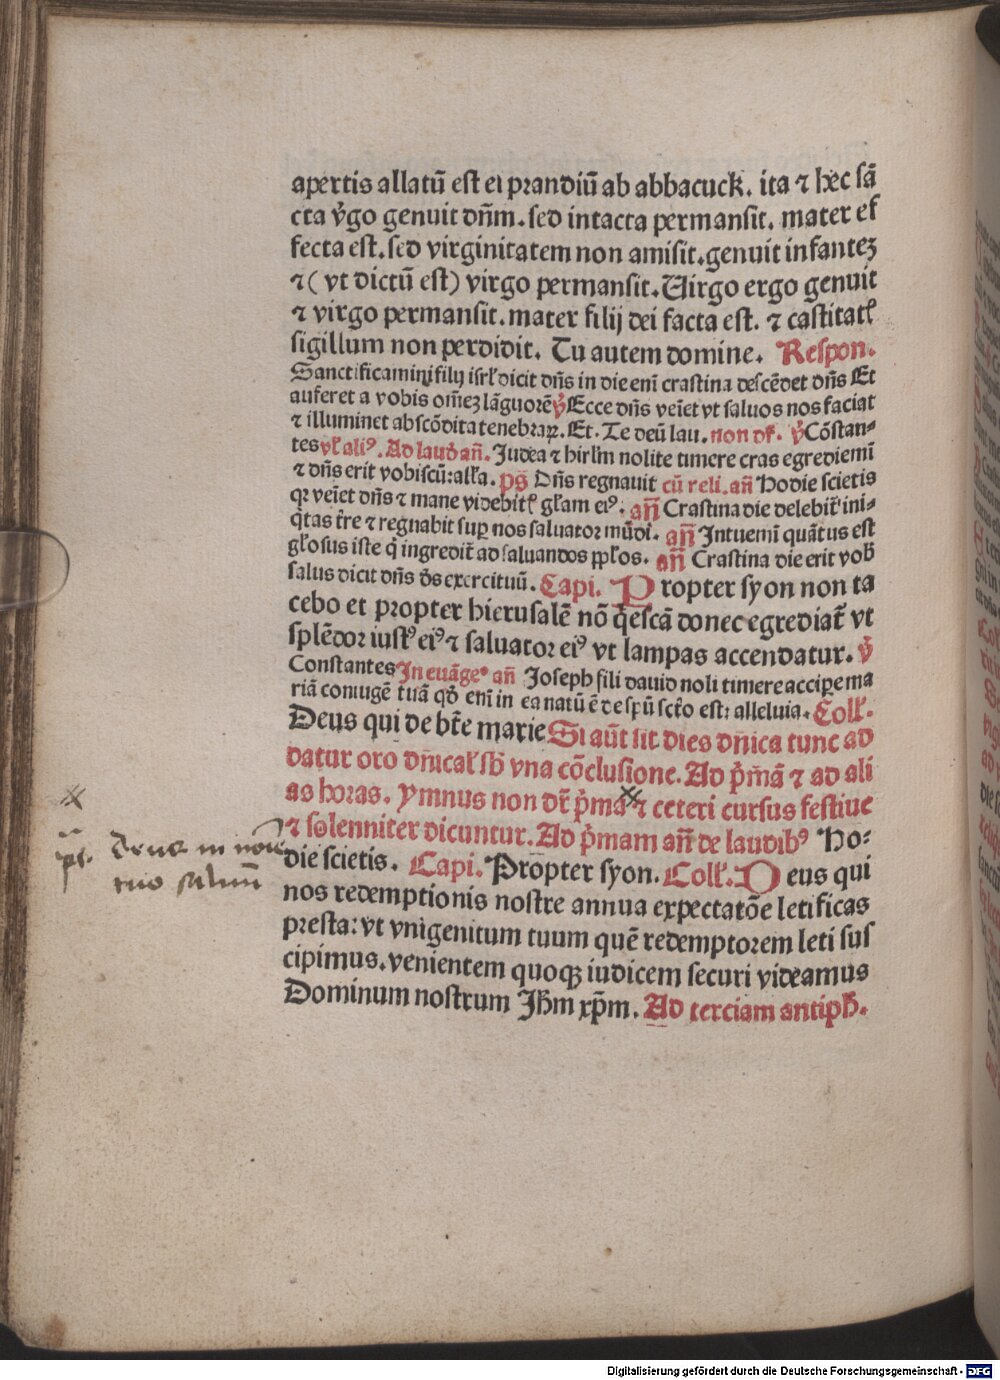 apertis allatū est ei prandiū ab abbacuck. ita ⁊ hec sā
cta v̓go genuit dn̄m. sed intacta permansit. mater ef
fecta est. sed virginitatem non amisit. genuit infanteꝫ
⁊ ( vt dictū est) virgo permansit. Uirgo ergo genuit
⁊ virgo permansit. mater filij dei facta est. ⁊ castitatꝭ
sigillum non perdidit. Tu autem domine. Respon.
Sanctificamini filij isrl̓ dicit dn̄s in die enī crastina descēdet dn̄s Et
auferet a vobis om̄eꝫ lāguorē ℣ Ecce dn̄s veīet vt saluos nos faciat
⁊ illuminet abscōdita tenebraꝝ. Et. Te deū lau. non df. ℣ Cōstan-
tes vl̓ aliꝰ. Ad laud̓ an̄. Judea ⁊ hirlm̄ nolite timere cras egrediemī
⁊ dn̄s erit vobiscū: all̓a. ps̄ Dn̄s regnauit cū reli. an̄ Hodie scietis
qꝛ veīet dn̄s ⁊ mane videbitꝭ gl̓am eiꝰ. an̄ Crastina die delebit̄ ini-
q̓tas t̄re ⁊ regnabit suꝑ nos saluator mūdi. an̄ Intuemī quātus est
gl̓osus iste q̓ ingredit̄ ad saluandos ppl̓os. an̄ Crastina die erit vob̄
salus dicit dn̄s d̓s exercituū. Capi. Propter syon non ta
cebo et propter hierusalē nō q̓escā donec egrediat̄ vt
splēdor iustꝰ eiꝰ ⁊ saluator eiꝰ vt lampas accendatur. ℣
Constantes In euāge. an̄ Joseph fili dauid noli timere acciꝑe ma
riā coniugē tuā qd̓ enī in ea natū ē de sp̄ū sct̄o est: alleluia. Coll̓.
Deus qui de bt̄e marie Si aūt sit dies dn̄ica tunc ad
datur oro dn̄ical̓ sb̓ vna cōclusione. Ad p̓mā ⁊ ad ali
as horas. ymnus non dr̄ p̓ma ⁊ ceteri cursus festiue
⁊ solenniter dicuntur. Ad p̓mam an̄ de laudibꝰ Ho-
die scietis. Capi. Propter syon. Coll̓. Deus qui
nos redemptionis nostre annua expectatōe letificas
presta: vt vnigenitum tuum quē redemptorem leti sus
cipimus. venientem quoqꝫ iudicem securi videamus
Dominum nostrum Jh̄m xp̄m. Ad terciam antiph̄.
ps. Deus in noīe
tuo saluū
Digitalisierung gefördert durch die Deutsche Forschungsgemeinschaft - DFG